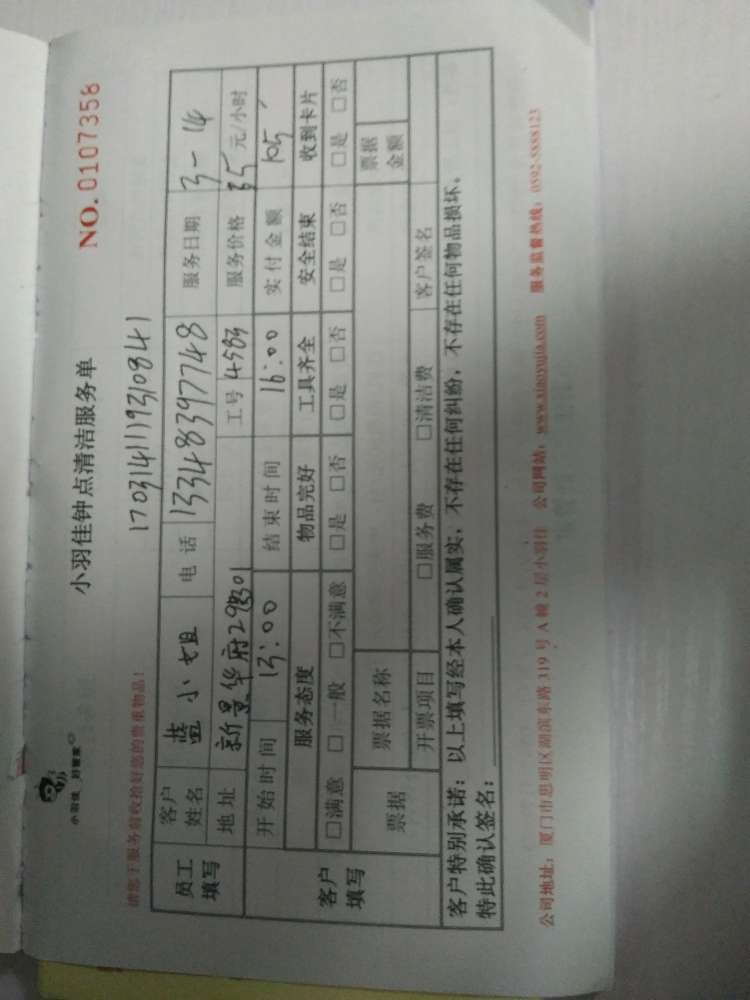 小羽佳 好管家
小羽佳钟点清洁服务单
NO. 0107358
1703141119310841
请您于服务前收拾好您的贵重物品！
员工填写
客户姓名 蓝小姐 电话 13348397748 服务日期 3-14
地址 新景华府29#301 工号 4583 服务价格 35元/小时
客户填写
开始时间 13:00 结束时间 16:00 实付金额 105
服务态度 物品完好 工具齐全 安全结束 收到卡片
□满意 □一般 □不满意 □是 □否 □是 □否 □是 □否 □是 □否
票据 票据名称 票据金额
开票项目 □服务费 □清洁费 客户签名
客户特别承诺：以上填写经本人确认属实，不存在任何纠纷，不存在任何物品损坏，
特此确认签名：
公司地址：厦门市思明区湖滨东路319号A幢2层小羽佳 公司网站：www.xiaoyujia.com 服务监督热线：0592-5888123